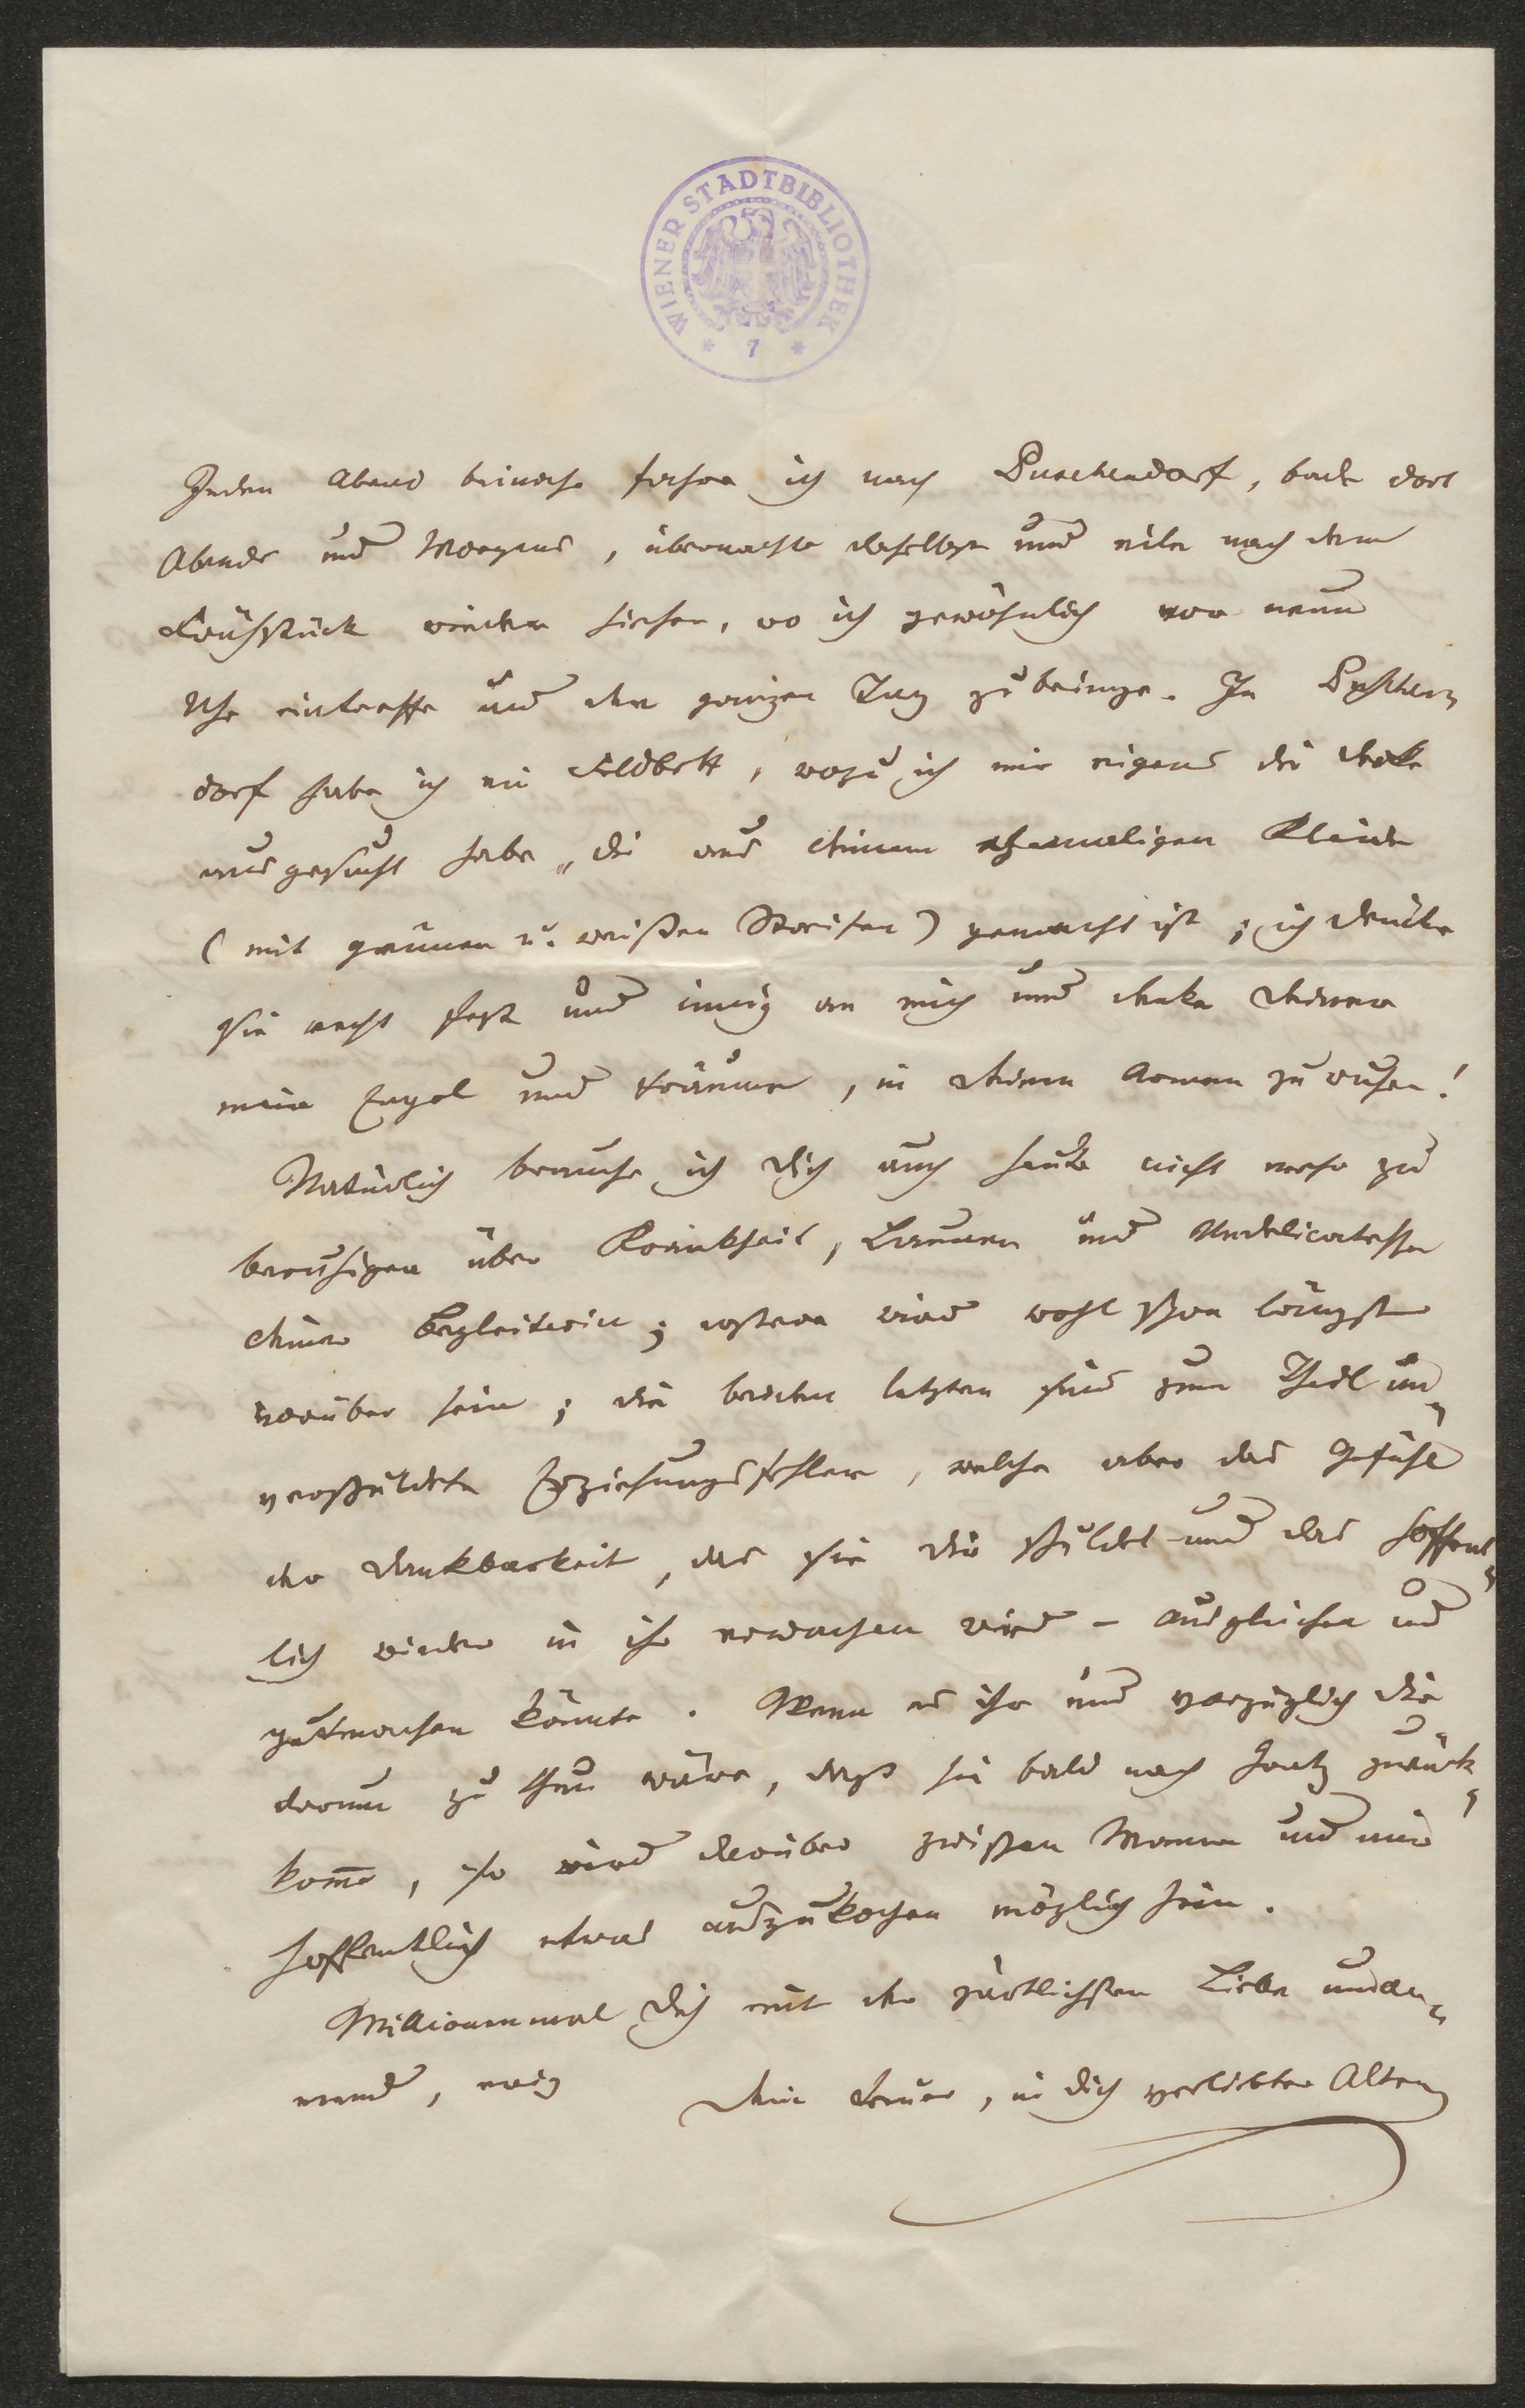 WIENER STADTBIBLIOTHEK
* 7 *
Jeden Abend beinahe fahre ich nach Puschendorf, bade dort
Abends und Morgens, übernachte daselbst und eile nach dem
Frühstück wieder hieher, wo ich gewöhnlich vor neun
Uhr eintreffe und den ganzen Tag zubringe. In
dorf habe ich ein Feldbett, wozu ich mir eigens die Decke
ausgesucht habe, die aus Deinem ehemaligen Kleide
(mit grünen u. weißen Streifen) gemacht ist; ich drücke
sie recht fest und innig an mich und denke Deiner
mein Engel und träume, in Deinen Armen zu ruhen!
Natürlich brauche ich Dich auch heute nicht mehr zu
beruhigen über Krankheit, Launen und Undelicatesse
Deiner Begleiterin; erstere wird wohl schon längst
vorüber sein; die beiden letzten sind zum Theil un-
verschuldete Erziehungsfehler, welche aber das Gefühl
der Dankbarkeit, das sie Dir schuldet - und das hoffent-
lich wieder in ihr erwachen wird - ausgleichen und
gutmachen könnte. Wenn es ihr und vorzüglich Dir
darum zu thun wäre, daß sie bald nach zurück-
komme, so wird darüber zwischen Mama und mir
hoffentlich etwas auszukochen möglich sein.
Millionenmal Dich mit der zärtlichsten Liebe umar-
mend, ewig Dein treuer, in Dich verliebter Alter